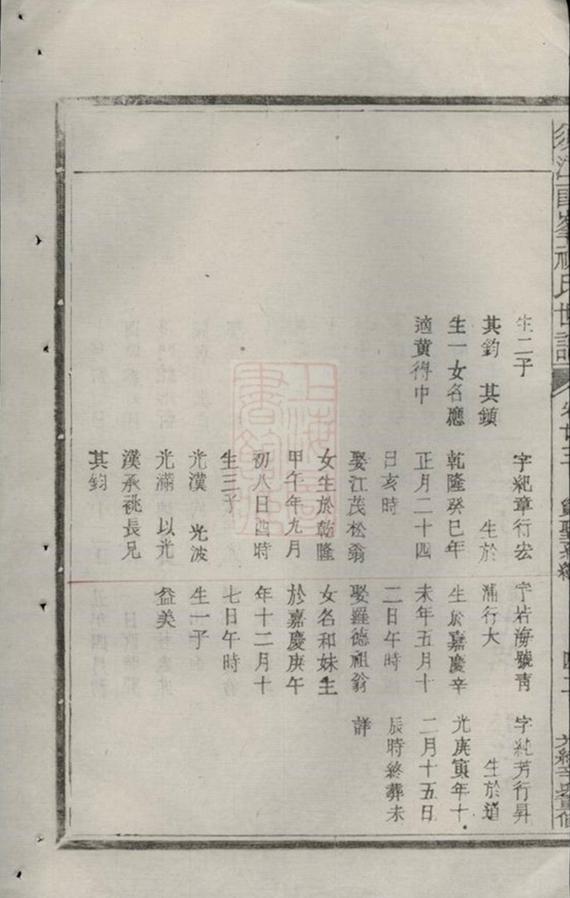 氏世譜
生二子
其鈞　其鎮
生一女名應
適黃得中
字紀章行宏
生於
乾隆癸巳年
正月二十四
日亥時
娶江茂松翁
女生於乾隆
甲午年九月
初八日酉時
生三子
光漢　光波
光滿　以光
漢承祧長兄
其鈞
字若海號靑
浦行大
生於嘉慶辛
未年五月十
二日午時
娶羅德祖翁
女名和妹生
於嘉慶庚午
年十二月十
七日午時
生一子
益美
字純芳行昇
生於道
光庚寅年十
二月十五日
辰時終葬未
詳